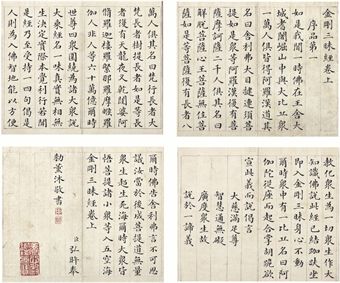 金剛三昧經卷上
序品第一
如是我聞一時佛在王舍大
城耆闍崛山中與大比丘眾
一萬人俱皆得阿羅漢道其
名曰舍利弗大目揵連須菩
提如是眾等阿羅漢復有菩
薩摩訶薩二千人俱其名曰
解脫菩薩心王菩薩無住菩
薩如是等菩薩復有長者八
萬人俱其名曰梵行長者大
梵長者樹提長者如是等長
者復有天龍夜叉乾闥婆阿
脩羅迦樓羅緊那羅摩睺羅
伽人非人等六十萬億爾時
世尊四眾圍繞為諸大眾說
大乘經名一味真實無相無
生決定實際本覺利行若聞
是經乃至受持一四句偈是
人則為入佛智地能以方便
教化眾生為一切眾生作大
知識佛說此經已結跏趺坐
即入金剛三昧身心不動
爾時眾中有一比丘名曰阿
伽陀從座而起合掌胡跪欲
宣此義而說偈言
大慈滿足尊
智慧通無礙
廣度眾生故
說於一諦義
爾時佛告舍利弗言不可思
議汝當於後成菩提道無量
眾生超生死海爾時大眾皆
悟菩提諸小眾等入五空海
金剛三昧經卷上
臣弘旿奉
勅薰沐敬書